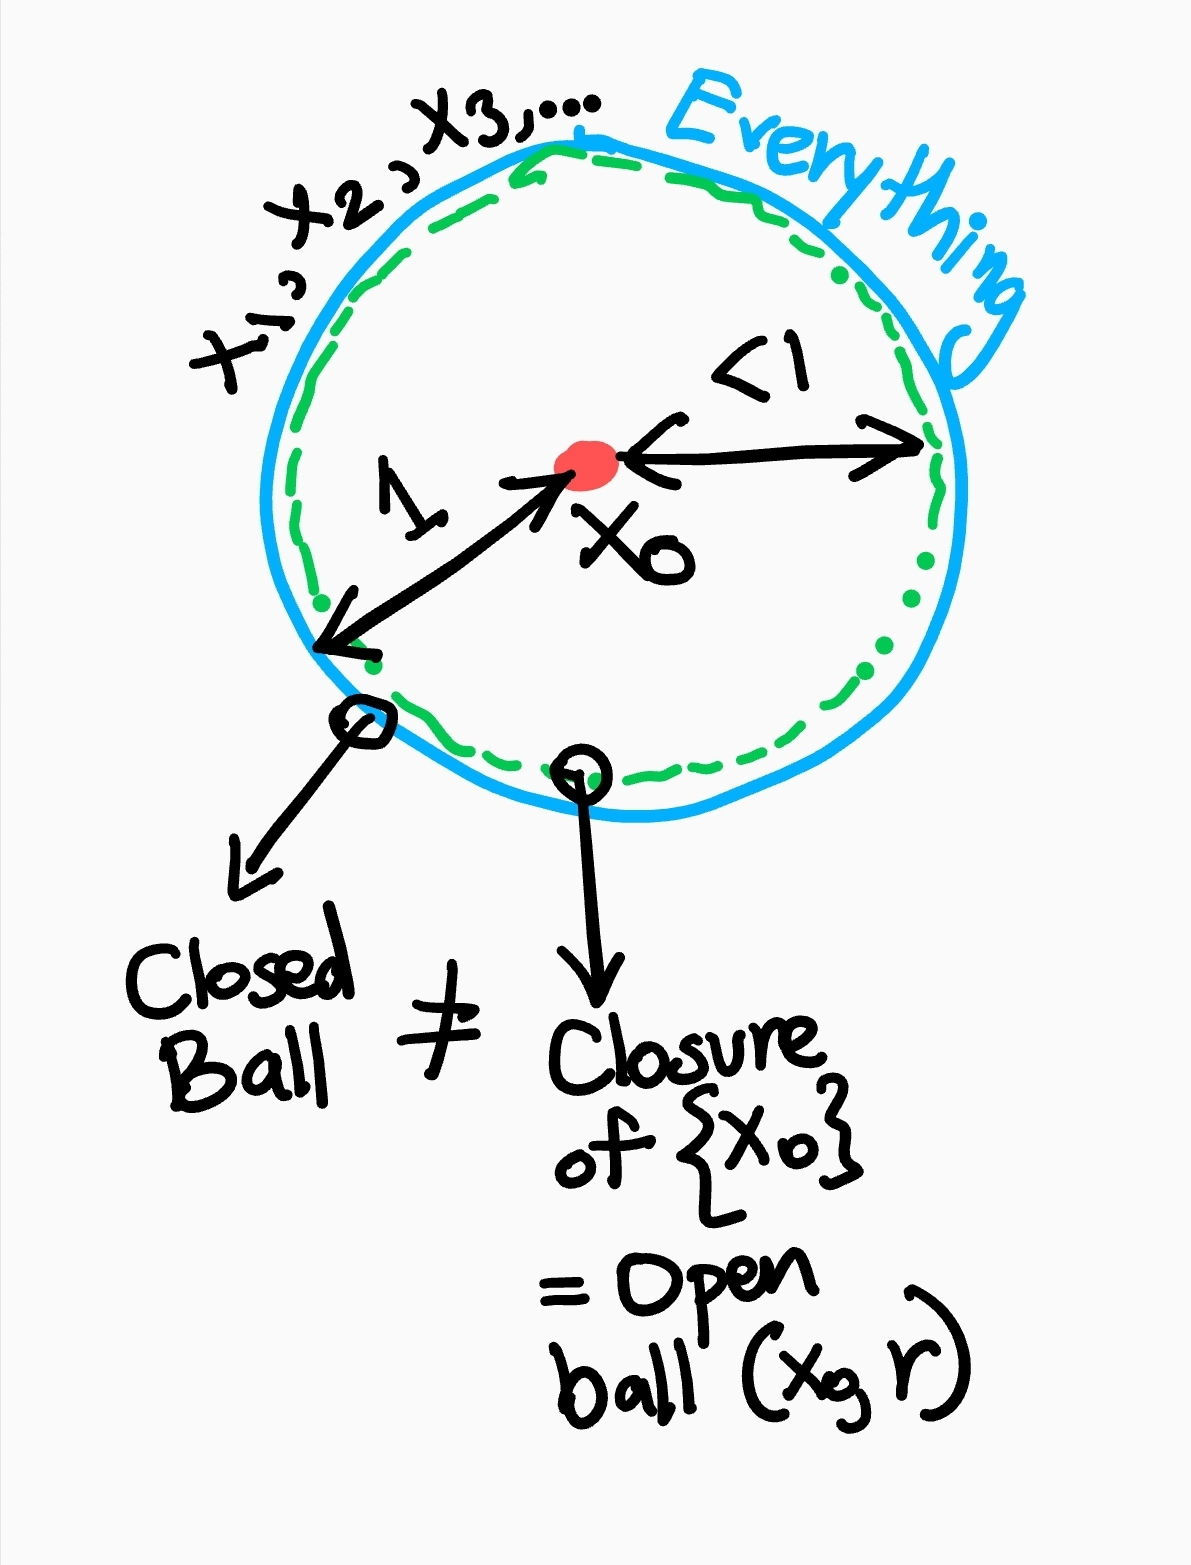 x1, x2, x3,...
Everything
<1
1
x0
Closed
Ball
≠
Closure
of {x0}
= Open
ball (x0, r)